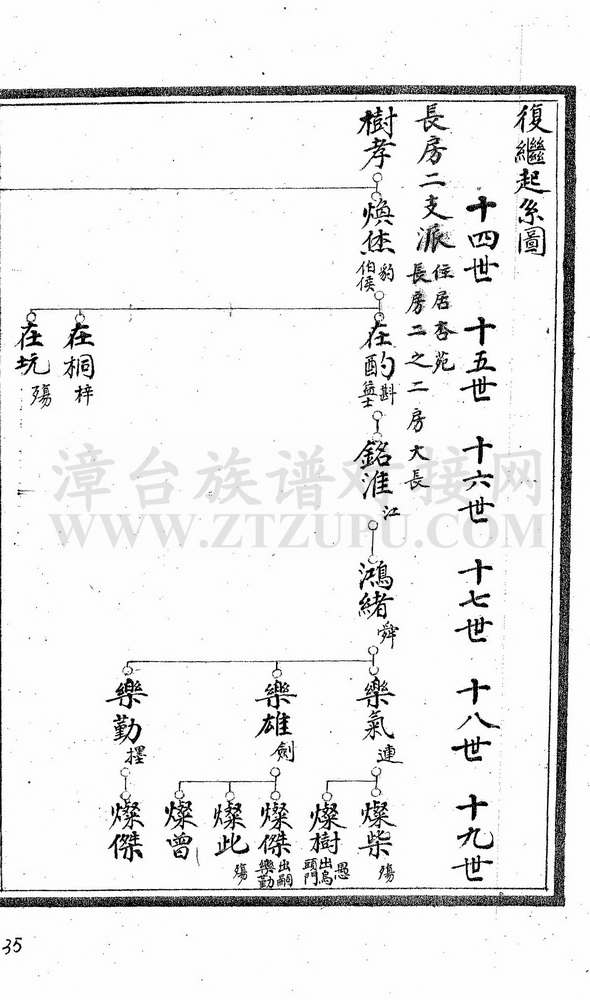 復繼起系圖
十四世 十五世 十六世 十七世 十八世 十九世
長房二支派
住居杏苑
長房二之二房大長
樹孝
煥烋
豹
伯侯
在酌
斟
銘淮
江
鴻緒
舜
樂氣
連
燦柴
殤
燦樹
愚
出烏
頭門
樂雄
劍
燦傑
出嗣
樂勤
燦此
殤
燦曾
樂勤
燦傑
在桐
梓
在坑
殤
漳台族谱对接网
WWW.ZTZUPU.COM
35